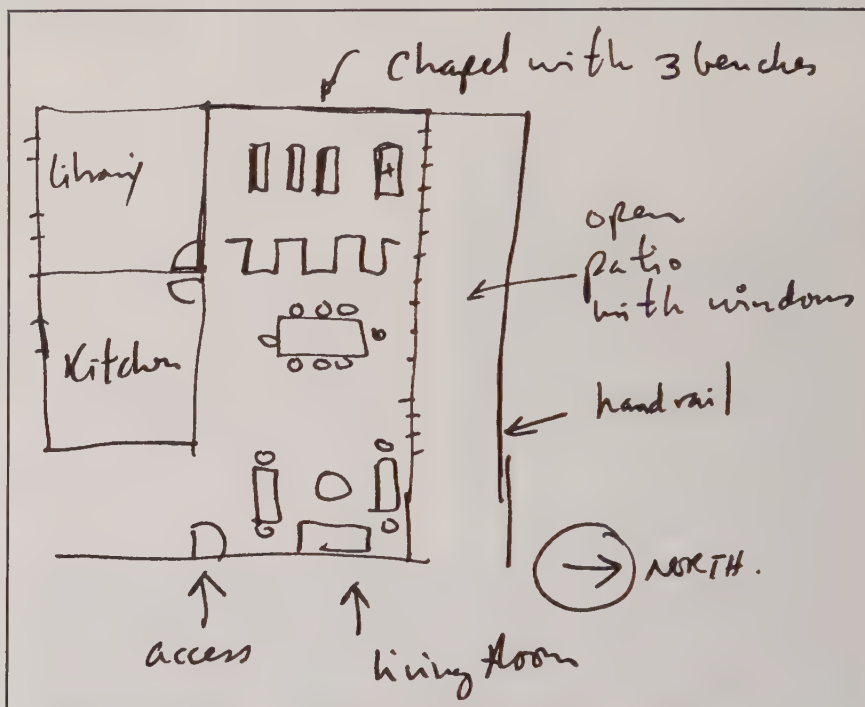 chapel with 3 benches
Library
open
patio
with windows
Kitchen
handrail
NORTH.
access
living room